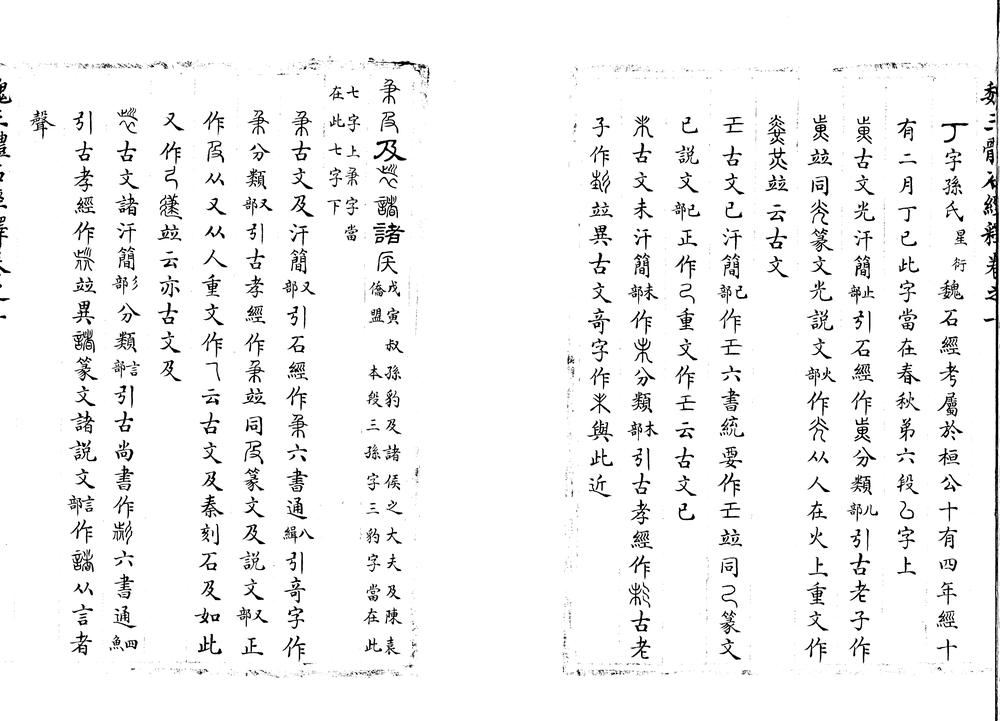 魏三體石經釋卷之一
丁字孫氏星衍魏石經考屬於桓公十有四年經十
有二月丁巳此字當在春秋第六段乙字上
古文光汗簡火部引石經作分類儿部引古老子作
竝同篆文光説文火部作从人在火上重文作
竝云古文
古文已汗簡巳部作六書統要作竝同篆文
已説文巳部正作重文作云古文已
古文未汗簡未部作分類木部引古孝經作古老
子作竝異古文奇字作與此近
及諸侯戊寅叔孫豹及諸侯之大夫及陳袁
僑盟 本段三孫字三豹字當在此
七字上秉字當
在此七字下
古文及汗簡又部引石經作六書通八緝引奇字作
分類又部引古孝經作竝同篆文及説文又部正
作从又从人重文作乁云古文及秦刻石及如此
又作竝云亦古文及
古文諸汗簡彡部分類言部引古尚書作六書通四魚
引古孝經作竝異篆文諸説文言部作从言者
聲
魏三體石經釋卷之一